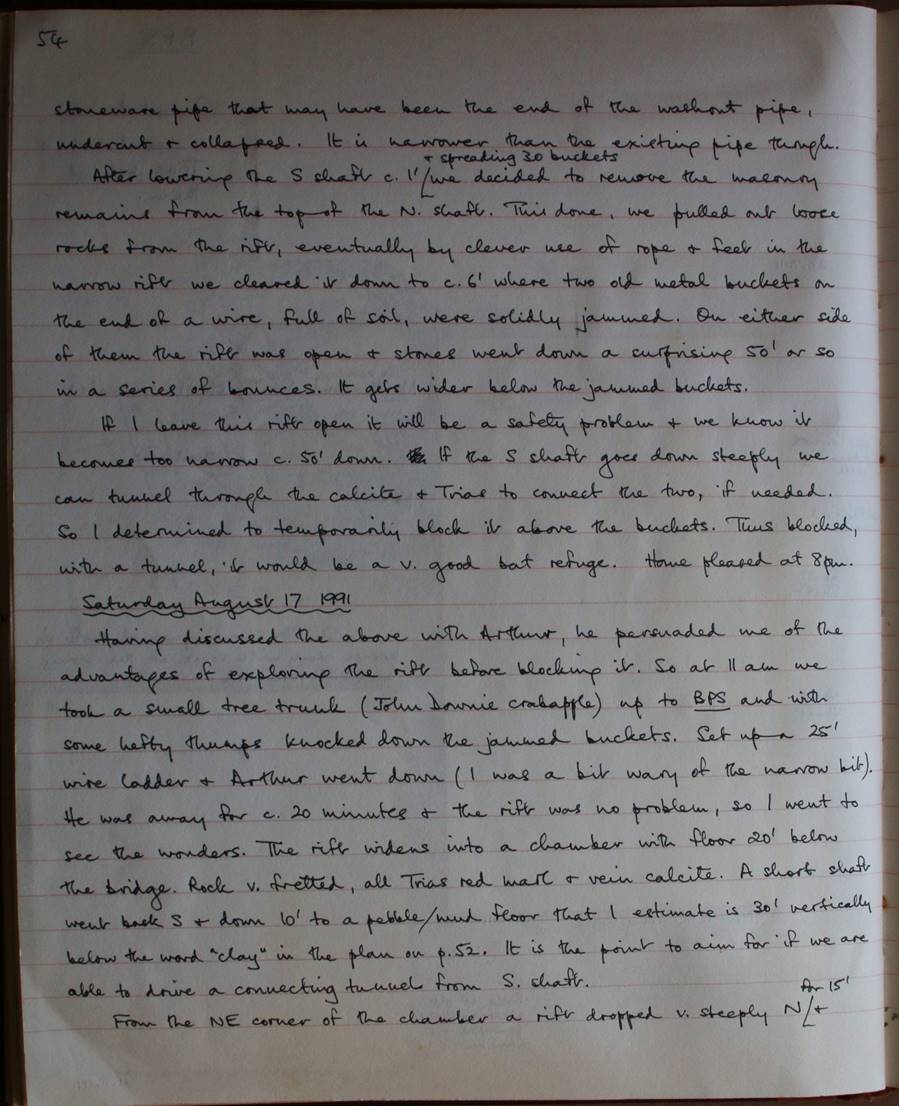 54
stoneware pipe that may have been the end of the washout pipe,
undercut + collapsed. It is narrower than the existing pipe though.
+ spreading 30 buckets
After lowering the S shaft c. 1'/we decided to remove the masonry
remains from the top of the N. shaft. This done, we pulled out loose
rocks from the rift, eventually by clever use of rope + feet in the
narrow rift we cleared it down to c. 6' where two old metal buckets on
the end of a wire, full of soil, were solidly jammed. On either side
of them the rift was open + stones went down a surprising 50' or so
in a series of bounces. It gets wider below the jammed buckets.
If I leave this rift open it will be a safety problem + we know it
becomes too narrow c. 50' down. If the S shaft goes down steeply we
can tunnel through the calcite + Trias to connect the two, if needed.
So I determined to temporarily block it above the buckets. Thus blocked,
with a tunnel, it would be a v. good bat refuge. Home pleased at 8pm.
Saturday August 17 1991
Having discussed the above with Arthur, he persuaded me of the
advantages of exploring the rift before blocking it. So at 11 am we
took a small tree trunk (John Downie crabapple) up to BPS and with
some hefty thumps knocked down the jammed buckets. Set up a 25'
wire ladder + Arthur went down (I was a bit wary of the narrow bit).
He was away for c. 20 minutes + the rift was no problem, so I went to
see the wonders. The rift widens into a chamber with floor 20' below
the bridge. Rock v. fretted, all Trias red marl + vein calcite. A short shaft
went back S + down 10' to a pebble/mud floor that I estimate is 30' vertically
below the word "clay" in the plan on p.52. It is the point to aim for if we are
able to drive a connecting tunnel from S. shaft.
for 15'
From the NE corner of the chamber a rift dropped v. steeply N/+